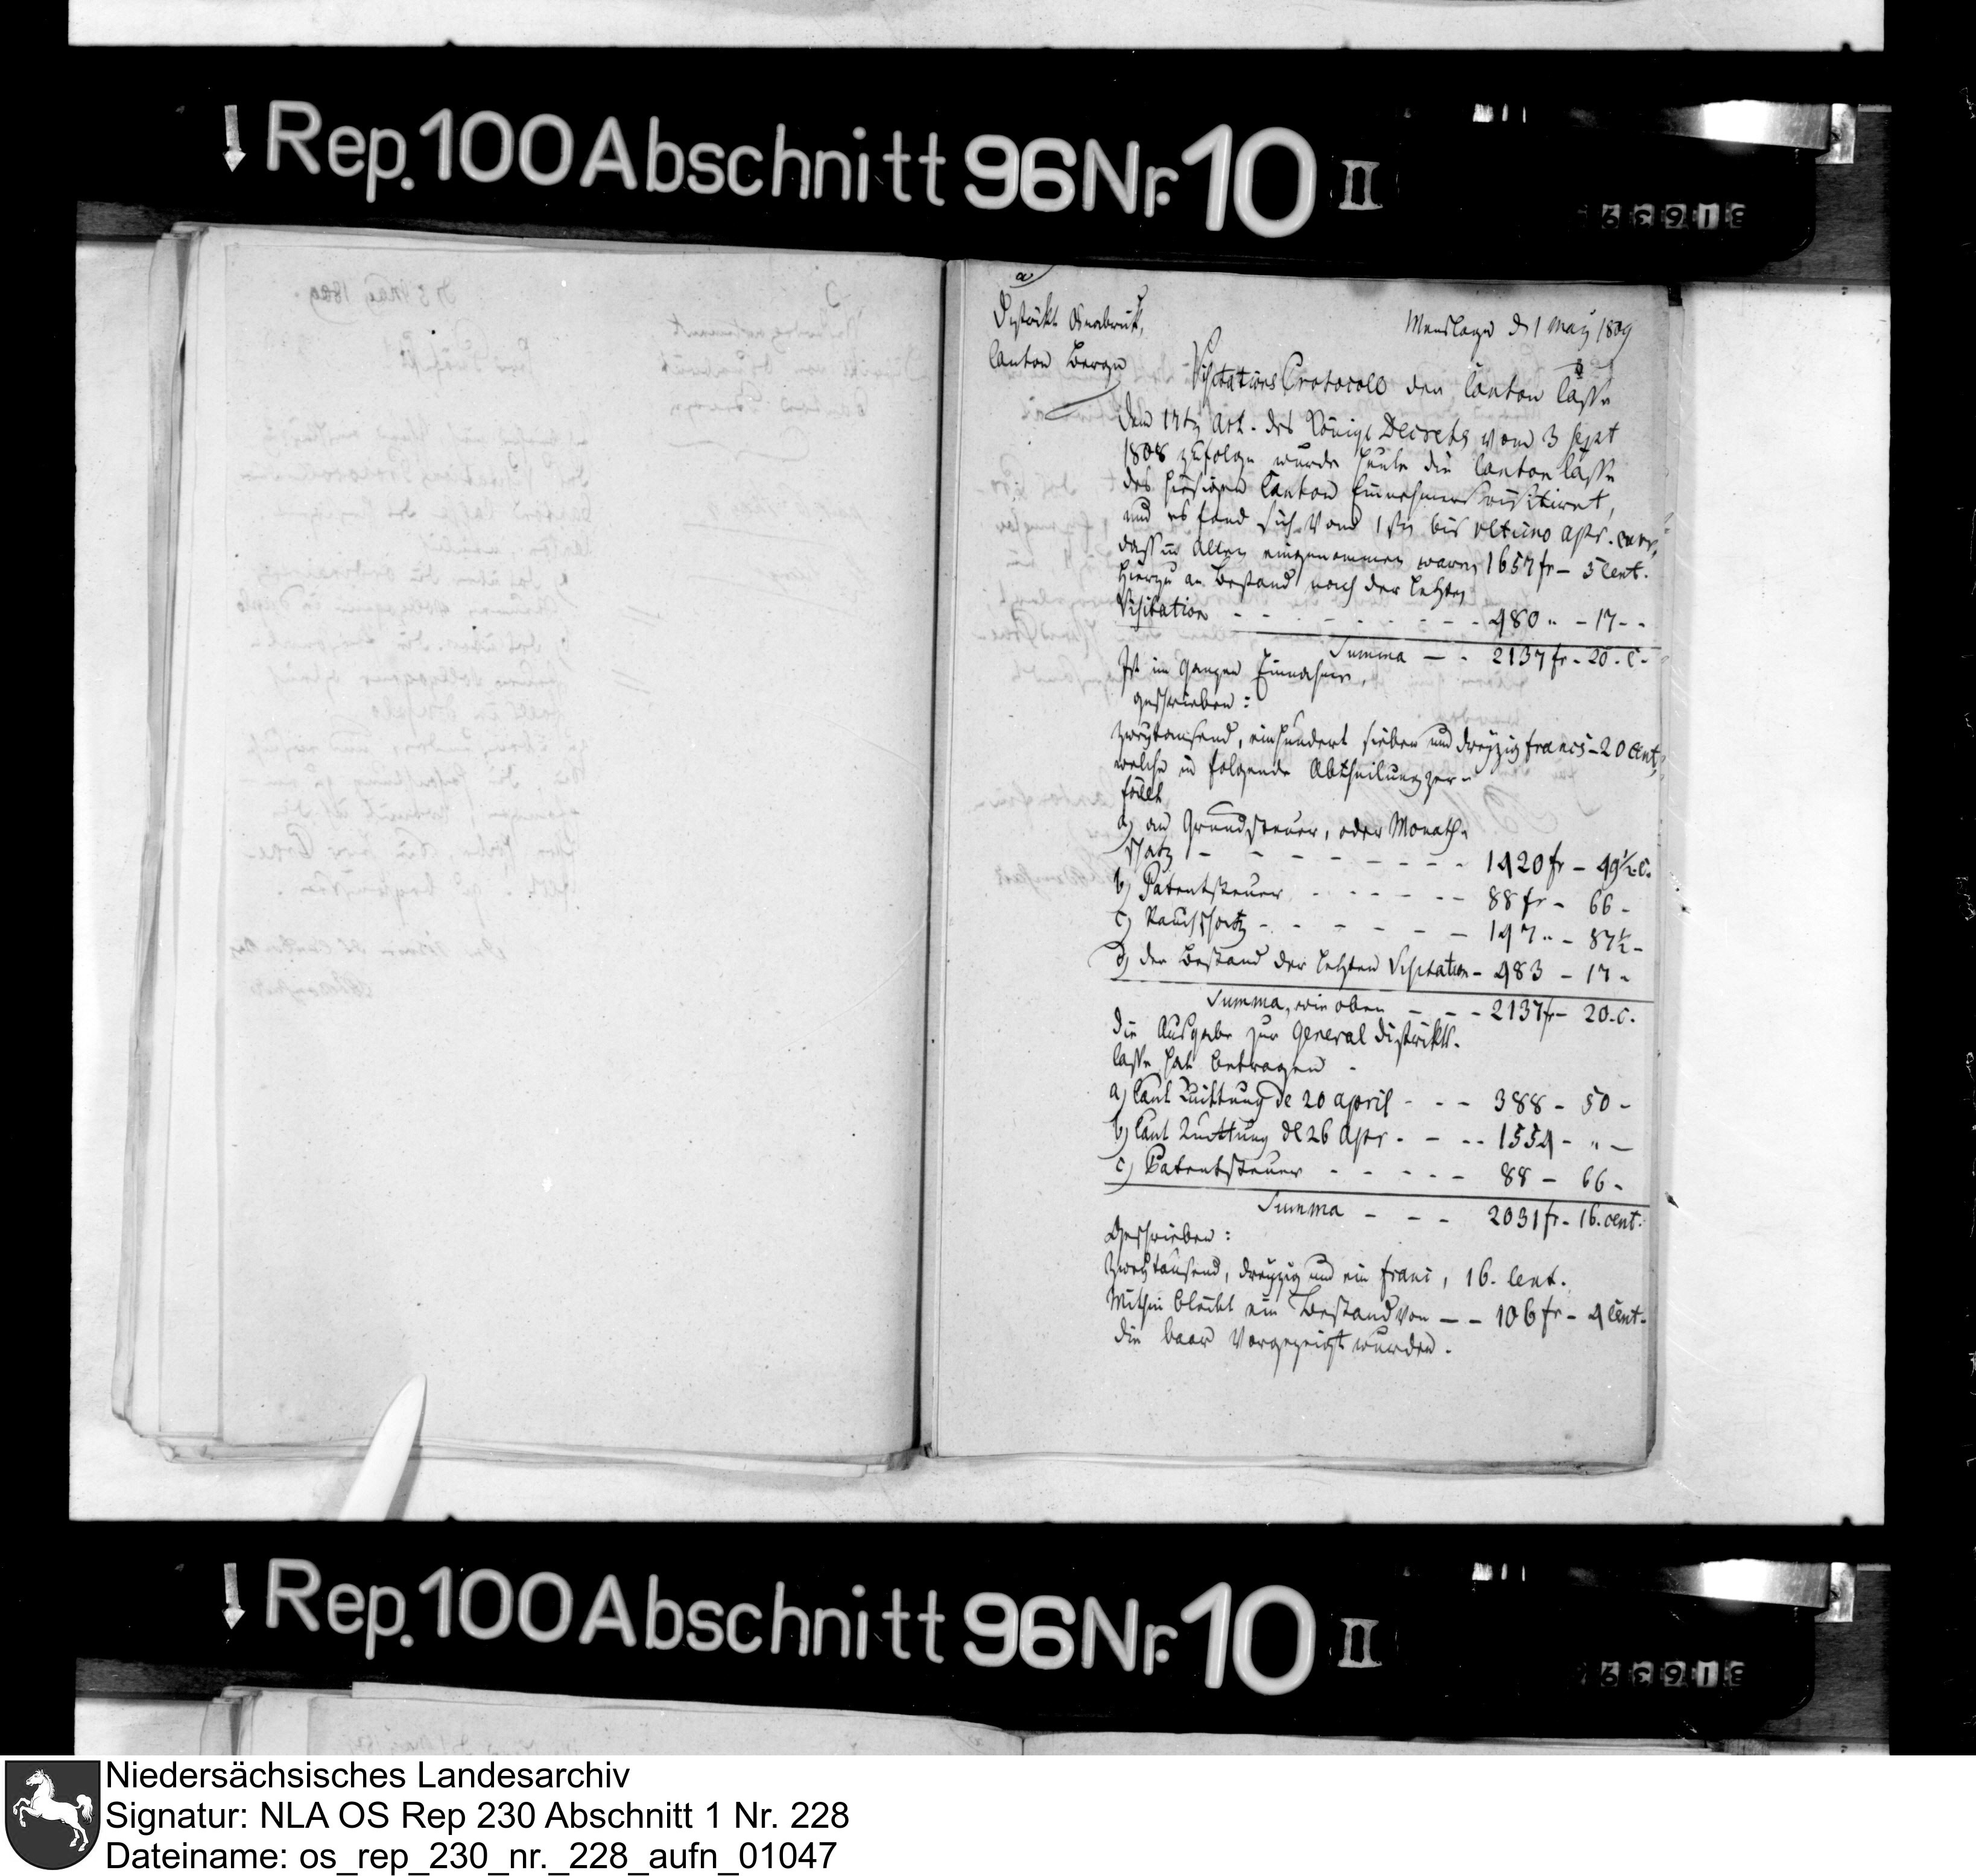 Rep. 100 Abschnitt 96 Nr. 10 II
31639
a
Distrikt Osnabrük,
Canton Berge
Menslage d 1 May 1809
Visitations Protocoll der Canton Casse
Dem 17t Art. des Königl Decrets vom 3 Sept
1808 zufolge wurde heute die Canton Casse
des hiesigen Canton Einnehmers visitiret,
und es fand sich vom 1ten bis ultimo Apr. curr.
daß in allem eingenommen waren 1657 fr - 3 Cent.
hierzu an Bestand nach der letzten
Visitation - - - - - - - 480 " - 17 - -
Summa - - 2137 fr - 20. C -
Ist im Ganzen Einnahme,
geschrieben :
zweytausend, einhundert sieben und dreyzig francs - 20 Cent,
welche in folgende Abtheilung zer-
fällt
a) an Grundsteuer, oder Monath-
schatz - - - - - - - 1420 fr - 49½ C.
b) Patentsteuer - - - - - - 88 fr - 66 -
c) Rauchschatz - - - - - - - 147 " - 87½ -
d) der Bestand der letzten Visitation - 483 - 17 -
Summa, wie oben - - - 2137 fr - 20. C.
die Ausgabe zur General Distrikts-
Casse hat betragen -
a) laut Quittung de 20 April - - - 388 - 50 -
b) laut Quittung de 26 Apr - - - - 1554 - " -
c) Patentsteuer - - - - - 88 - 66 -
Summa - - - 2031 fr - 16. cent.
Geschrieben :
zweytausend, dreyzig und ein franc, 16. Cent.
Mithin bleibt ein Bestand von - - 106 fr - 4 Cent -
die baar vorgezeigt wurden .
Rep. 100 Abschnitt 96 Nr. 10 II
31639
Niedersächsisches Landesarchiv
Signatur: NLA OS Rep 230 Abschnitt 1 Nr. 228
Dateiname: os_rep_230_nr._228_aufn_01047